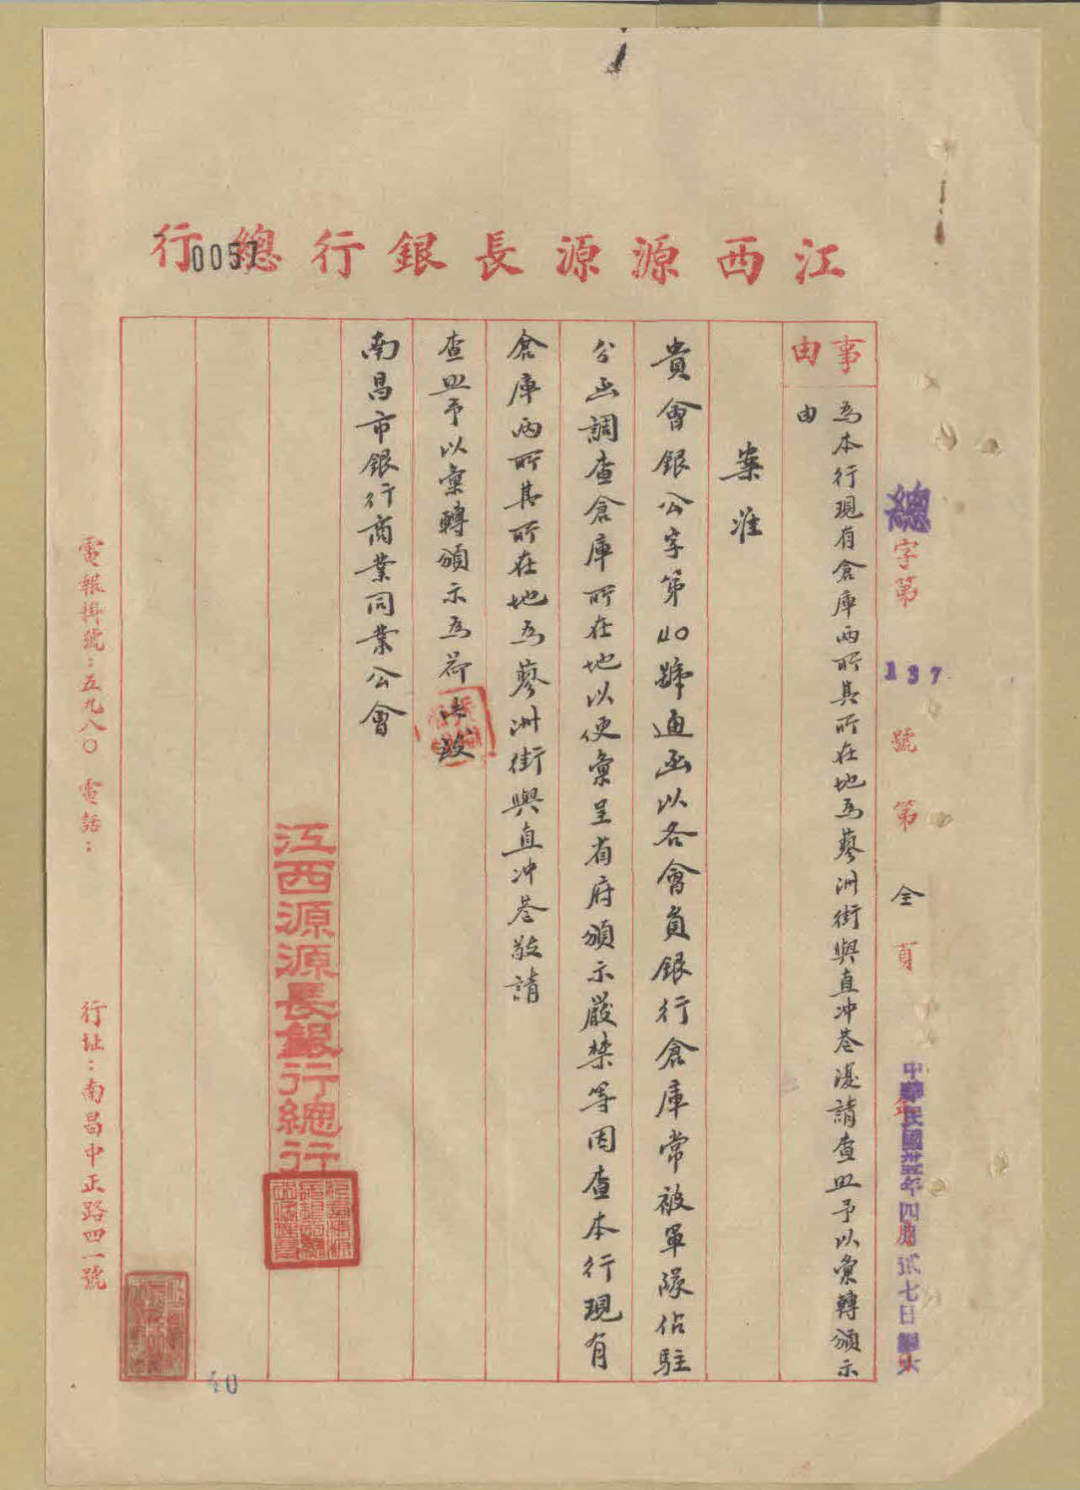 江西源源長銀行總行
0057
總字第137號第全頁
中華民國卅五年四月貳七日
事由
為本行現有倉庫兩所其所在地為蓼洲街與直冲巷漫請查照予以彙轉頒示
由
案准
貴會銀公字第40號通函以各會員銀行倉庫常被軍隊佔駐
分函調查倉庫所在地以便彙呈省府頒示嚴禁等因查本行現有
倉庫兩所其所在地為蓼洲街與直冲巷敬請
查照予以彙轉頒示為荷此致
南昌市銀行商業同業公會
江西源源長銀行總行
40
電報掛號：五九八〇 電話：
行址：南昌中正路四一號